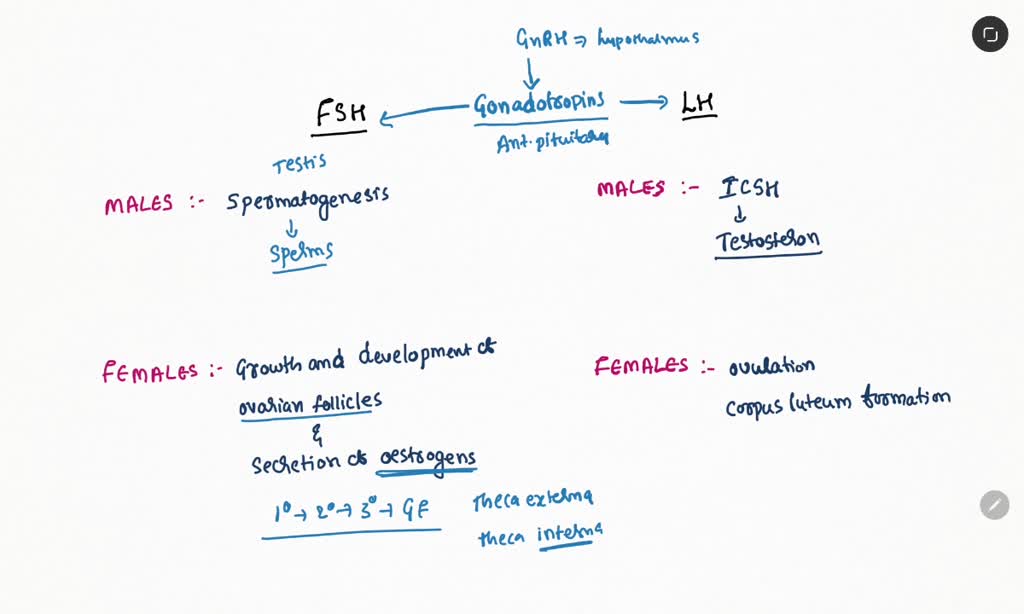 GnRH ⇒ hypothalmus
FSH ← Gonadotropins → LH
Ant. pituitary
Testis
MALES :- Spermatogenesis
↓
Sperms
MALES :- ICSH
↓
Testosteron
FEMALES :- Growth and development of
ovarian follicles
&
Secretion of oestrogens
1° → 2° → 3° → GF
Theca externa
theca interna
FEMALES :- ovulation
Corpus luteum formation